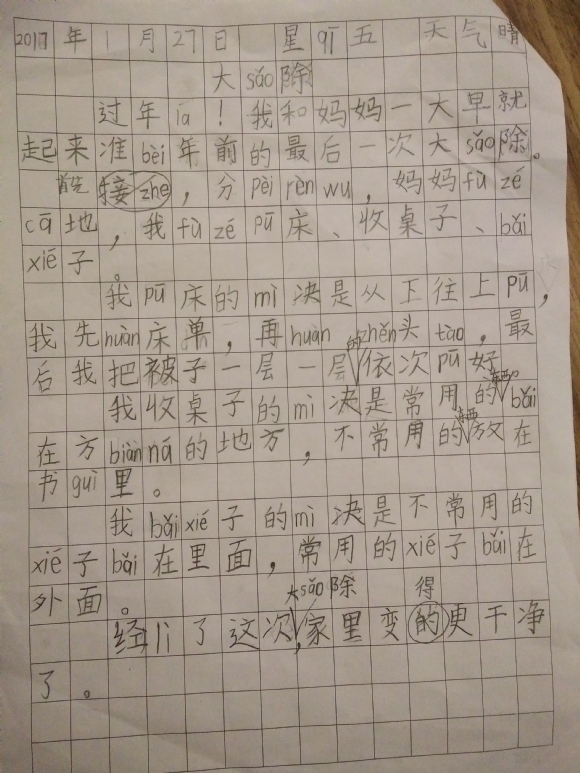 2017年1月27日 星qī五 天气晴
大sǎo除
过年la！我和妈妈一大早就
起来准bèi年前的最后一次大sǎo除。
首先接zhe，分pèi rèn wu，妈妈fù zé
cā地，我fù zé pū床、收桌子、bǎi
xié子。
我pū床的mì决是从下往上pū，
我先huàn床单，再huàn zhěn头tào，最
后我把被子一层一层的依次pū好
我收桌子的mì决是常用的东西bǎi
在方biàn ná的地方，不常用的东西放在
书guì里。
我bǎi xié子的mì决是不常用的
xié子bǎi在里面，常用的xié子bǎi在
外面。
大sǎo除 得
经lì了这次，家里变的更干净
了。